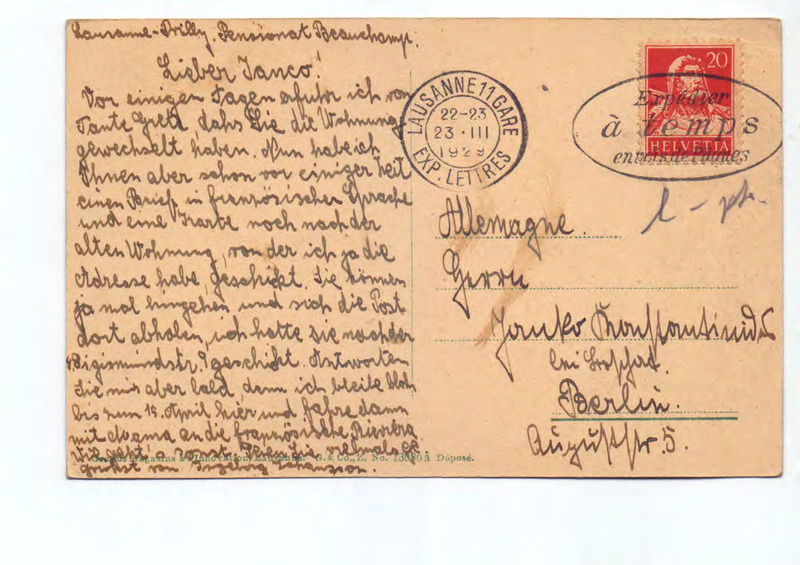 Lausanne-Prilly, Pensionat Beauchamp.
Lieber Janco!
Vor einigen Tagen erfuhr ich von
Tante Grete daß Sie die Wohnung
gewechselt haben. Nun habe ich
Ihnen aber schon vor einiger Zeit
einen Brief in französischer Sprache
und eine Karte noch nach der
alten Wohnung, von der ich ja die
Adresse habe, geschickt. Sie können
ja mal hingehen und sich die Post
dort abholen, ich hatte sie nach der
Sigismundstr. 9 geschickt. Antworten
Sie mir aber bald, denn ich bleibe bloß
bis zum 15. April hier und fahre dann
mit Mama an die französische Riviera
Wie geht's sonst? Seien Sie vielmals
gegrüßt von Ingeborg Johansson.
G. & Co., Z. No. 13080a Déposé.
LAUSANNE 11 GARE
22-23
23·III
1929
EXP. LETTRES
20
HELVETIA
Expédier
à temps
Allemagne.
Herrn
Janko Konstantinides
bei
Berlin.
Auguststr. 5.